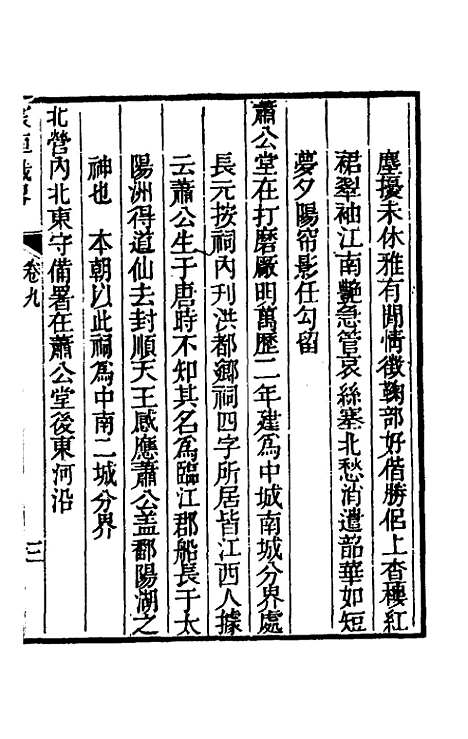 塵擾未休雅有閒情徵鞠部好偕勝侶上查樓紅
裙翠袖江南艷急管哀絲塞北愁消遣韶華如短
夢夕陽帘影任勾留
蕭公堂在打磨厰明萬歷二年建爲中城南城分界處
長元按祠内刋洪都鄉祠四字所居皆江西人據
云蕭公生于唐時不知其名爲臨江郡船長于太
陽洲得道仙去封順天王感應蕭公盖鄱陽湖之
神也　本朝以此祠爲中南二城分界
北營内北東守備署在蕭公堂後東河沿
宸垣識畧
卷九
三